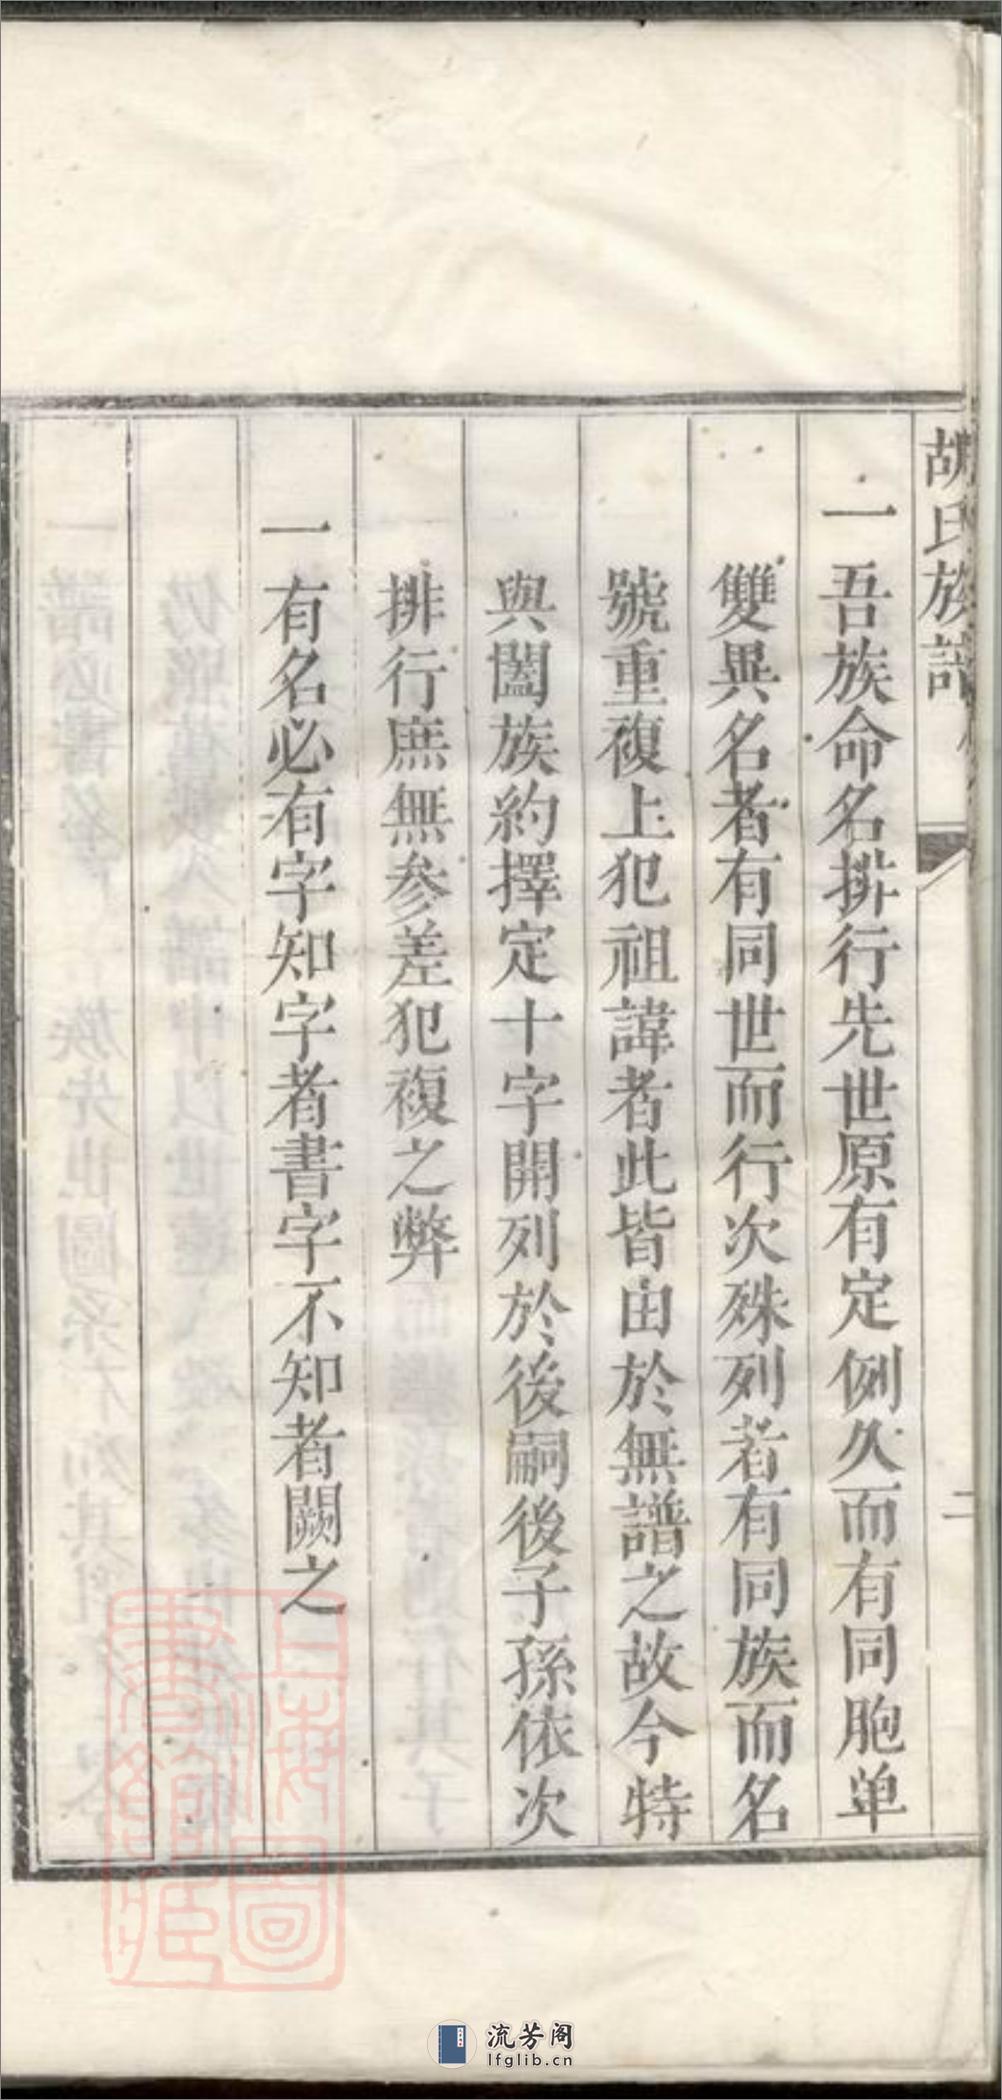 胡氏族譜
二
一吾族命名排行先世原有定例久而有同胞单
雙異名者有同世而行次殊列者有同族而名
號重複上犯祖諱者此皆由於無譜之故今特
與闔族約擇定十字開列於後嗣後子孫依次
排行庶無參差犯複之弊
一有名必有字知字者書字不知者闕之
上海圖
書館藏
流芳阁
lfglib.cn